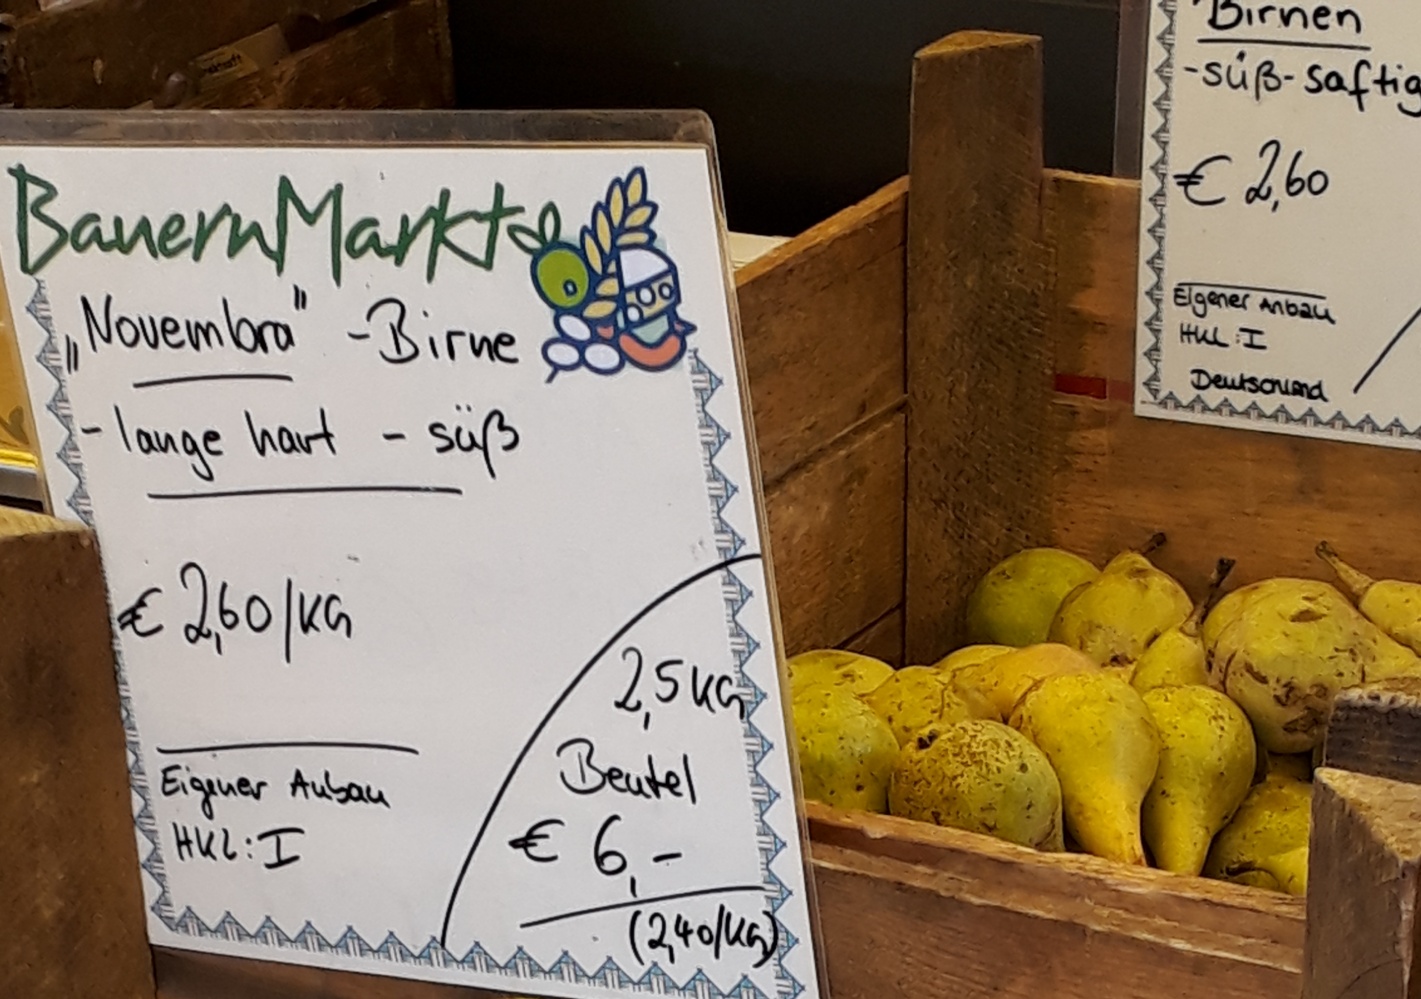 BauernMarkt
„Novembra" -Birne
- lange hart - süß
€ 2,60/KG
Eigener Anbau
HKL: I
2,5 KG
Beutel
€ 6,-
(2,40/KG)
Birnen
-süß-saftig
€ 2,60
Eigener Anbau
HKL: I
Deutschland